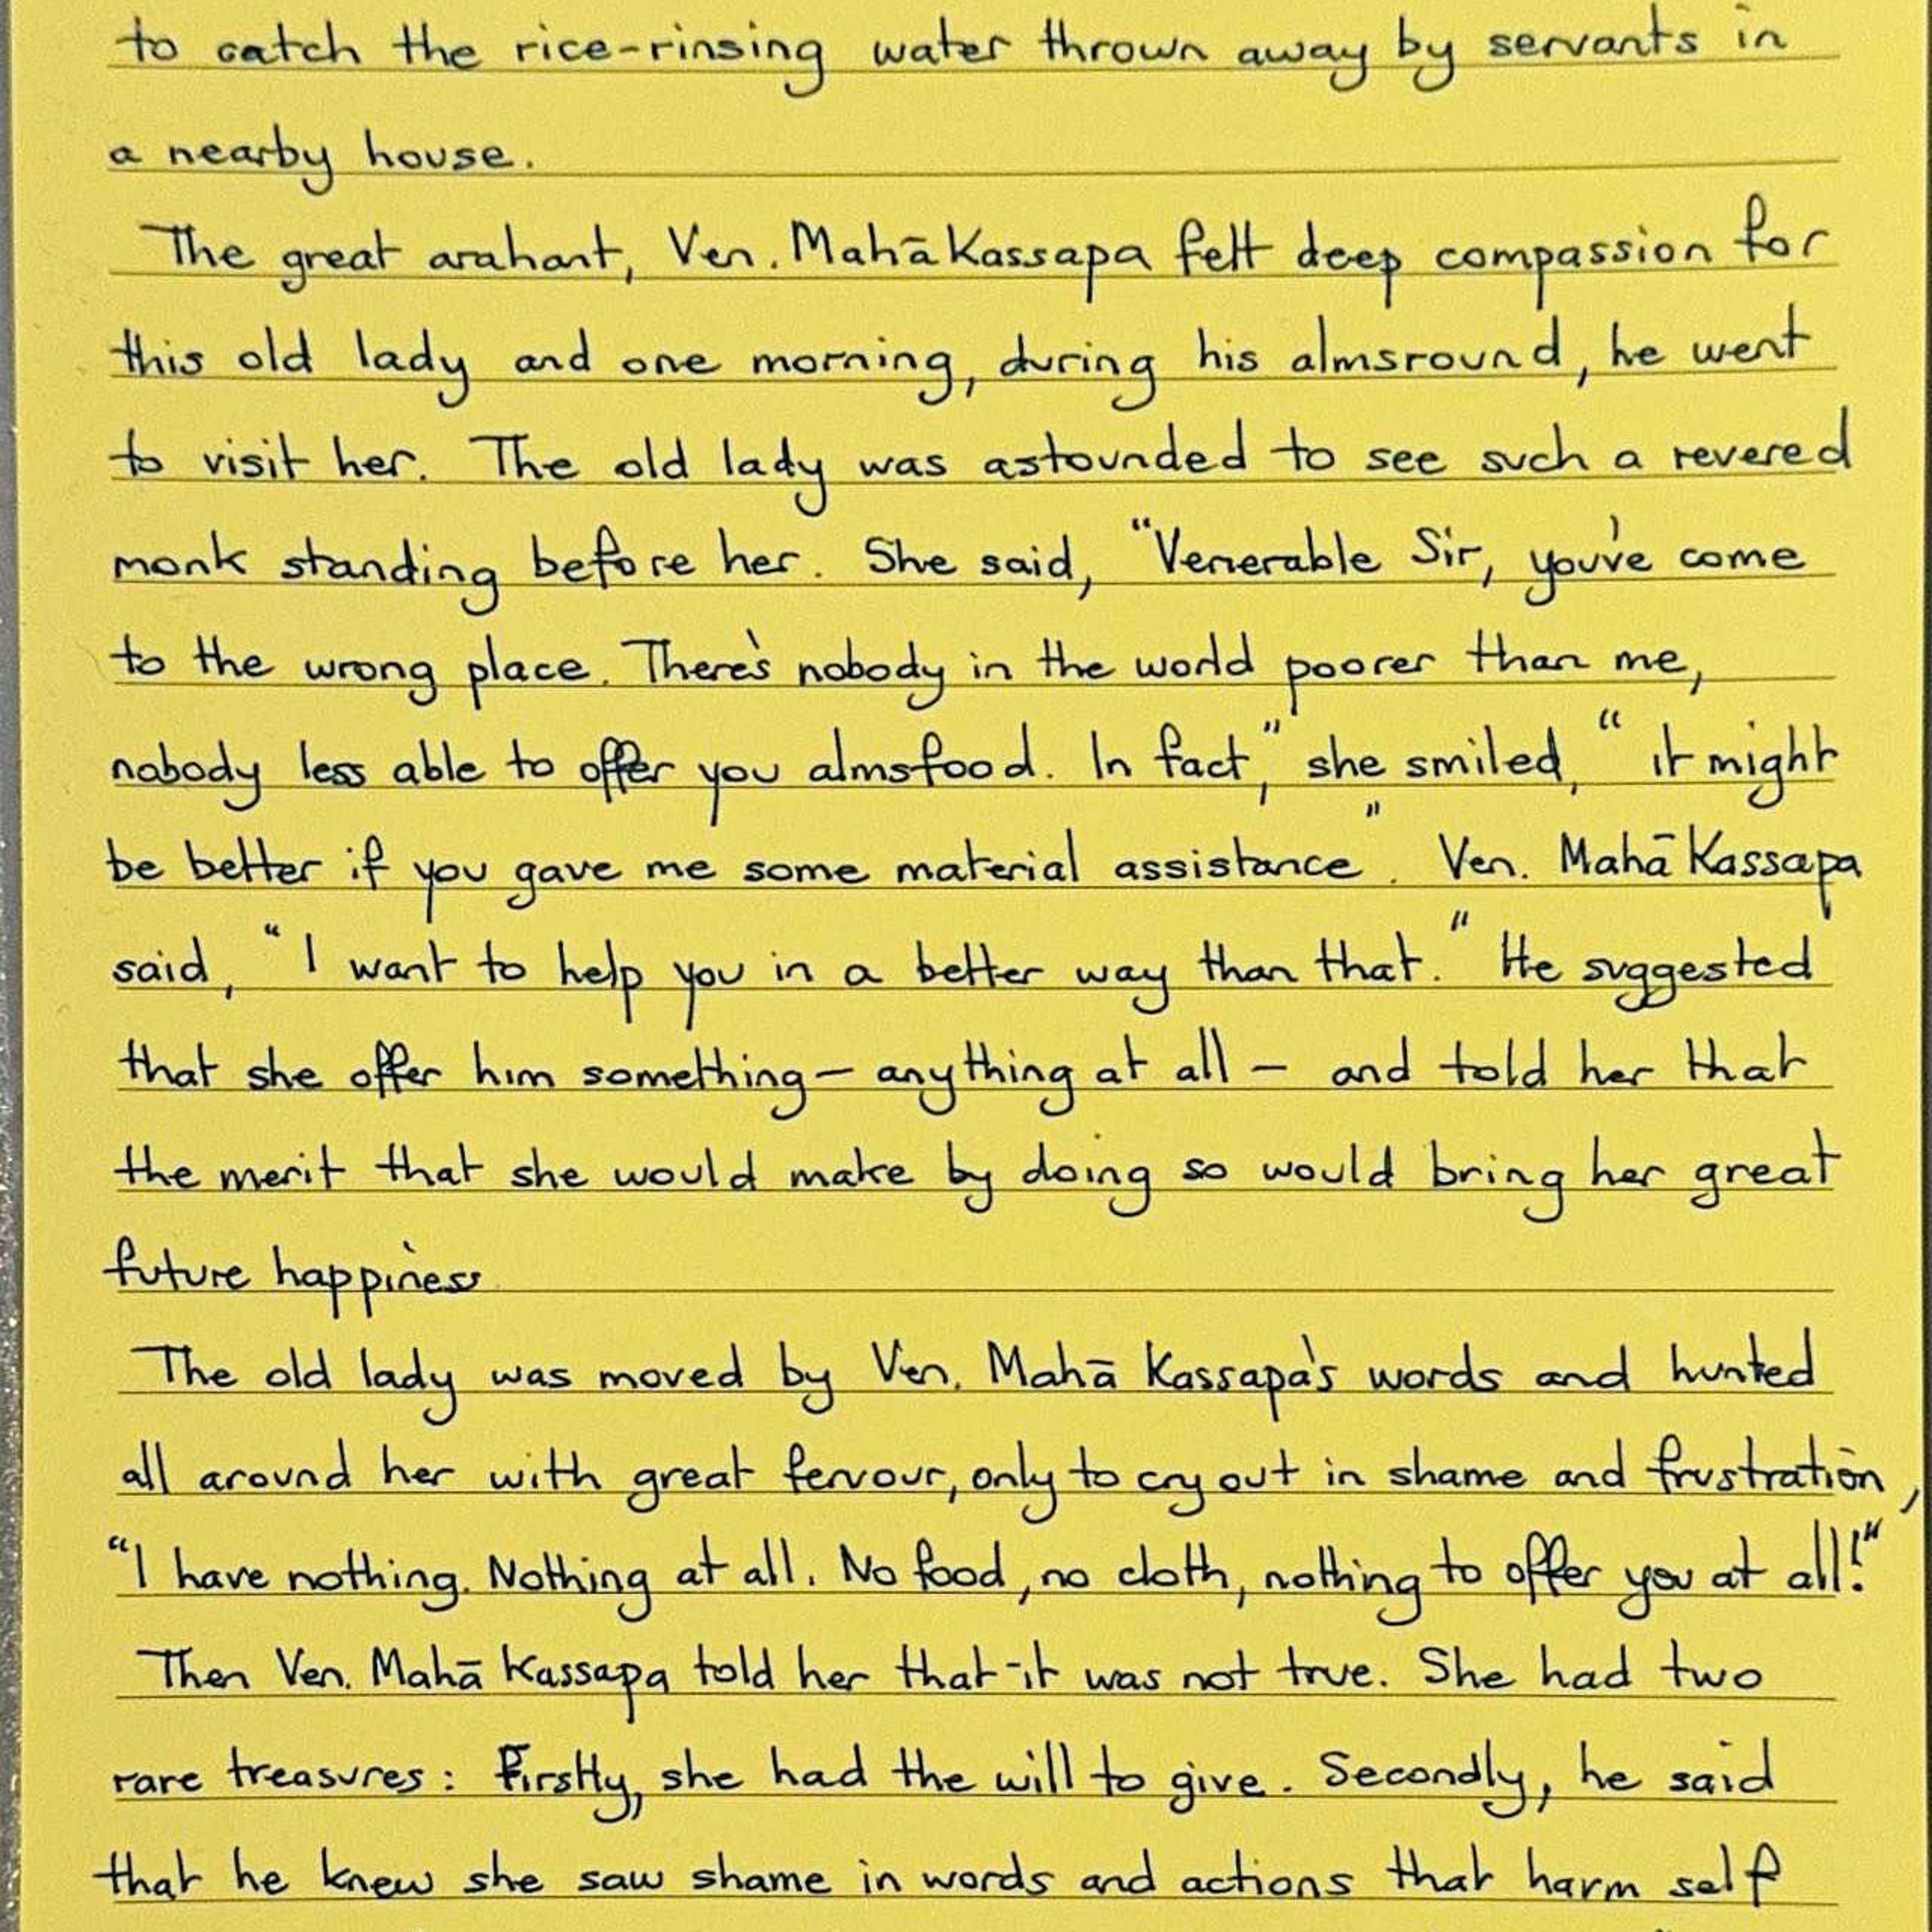 to catch the rice-rinsing water thrown away by servants in
a nearby house.
The great arahant, Ven. Mahā Kassapa felt deep compassion for
this old lady and one morning, during his almsround, he went
to visit her. The old lady was astounded to see such a revered
monk standing before her. She said, “Venerable Sir, you've come
to the wrong place. There's nobody in the world poorer than me,
nobody less able to offer you almsfood. In fact,” she smiled, “it might
be better if you gave me some material assistance”. Ven. Mahā Kassapa
said, “I want to help you in a better way than that.” He suggested
that she offer him something – anything at all – and told her that
the merit that she would make by doing so would bring her great
future happiness
The old lady was moved by Ven. Mahā Kassapa's words and hunted
all around her with great fervour, only to cry out in shame and frustration,
“I have nothing. Nothing at all. No food, no cloth, nothing to offer you at all!”
Then Ven. Mahā Kassapa told her that it was not true. She had two
rare treasures: Firstly, she had the will to give. Secondly, he said
that he knew she saw shame in words and actions that harm self